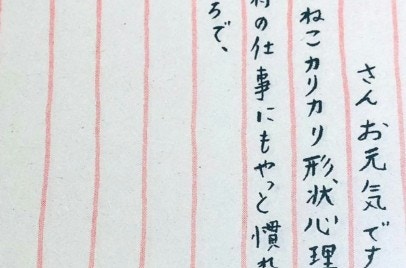 さんお元気です
ねこカリカリ形状心理
の仕事にもやっと慣れ
ろで、